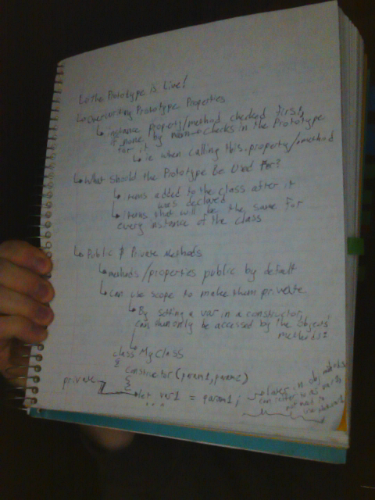 ↳ The Prototype is Live!
↳ Overwriting Prototype Properties
↳ instance Property/method checked first,
if none by name checks in the Prototype
for it
↳ ie when calling this.property/method
↳ What Should the Prototype Be Used For?
↳ items added to the class after it
was declared
↳ items that will be the same for
every instance of the class
↳ Public & Private Methods
↳ methods/properties public by default
↳ can use scope to make them private
↳ By setting a var in a constructor,
can then only be accessed by the objects'
methods!!
class MyClass
{
constructor(param1, param2)
{
private
let var1 = param1;